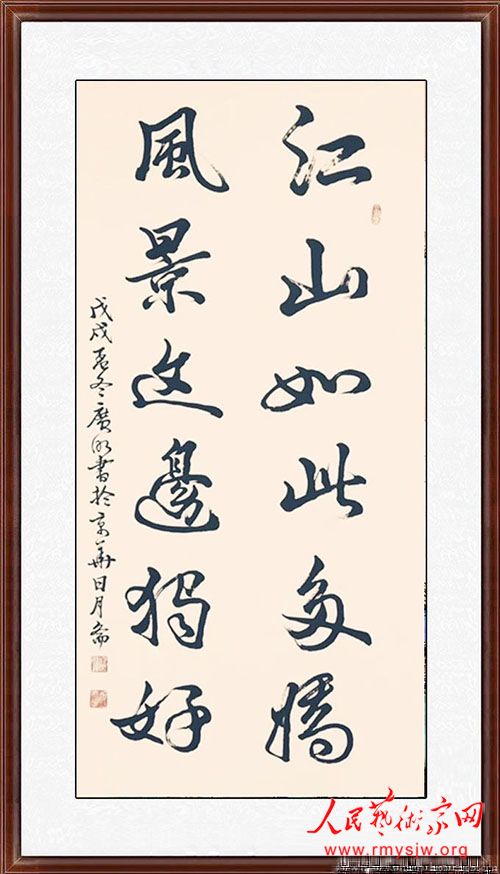 江山如此多嬌
風景这邊獨好
戊戌冬廣書於京華日月斋
人民藝術家网
www.rmysjw.org